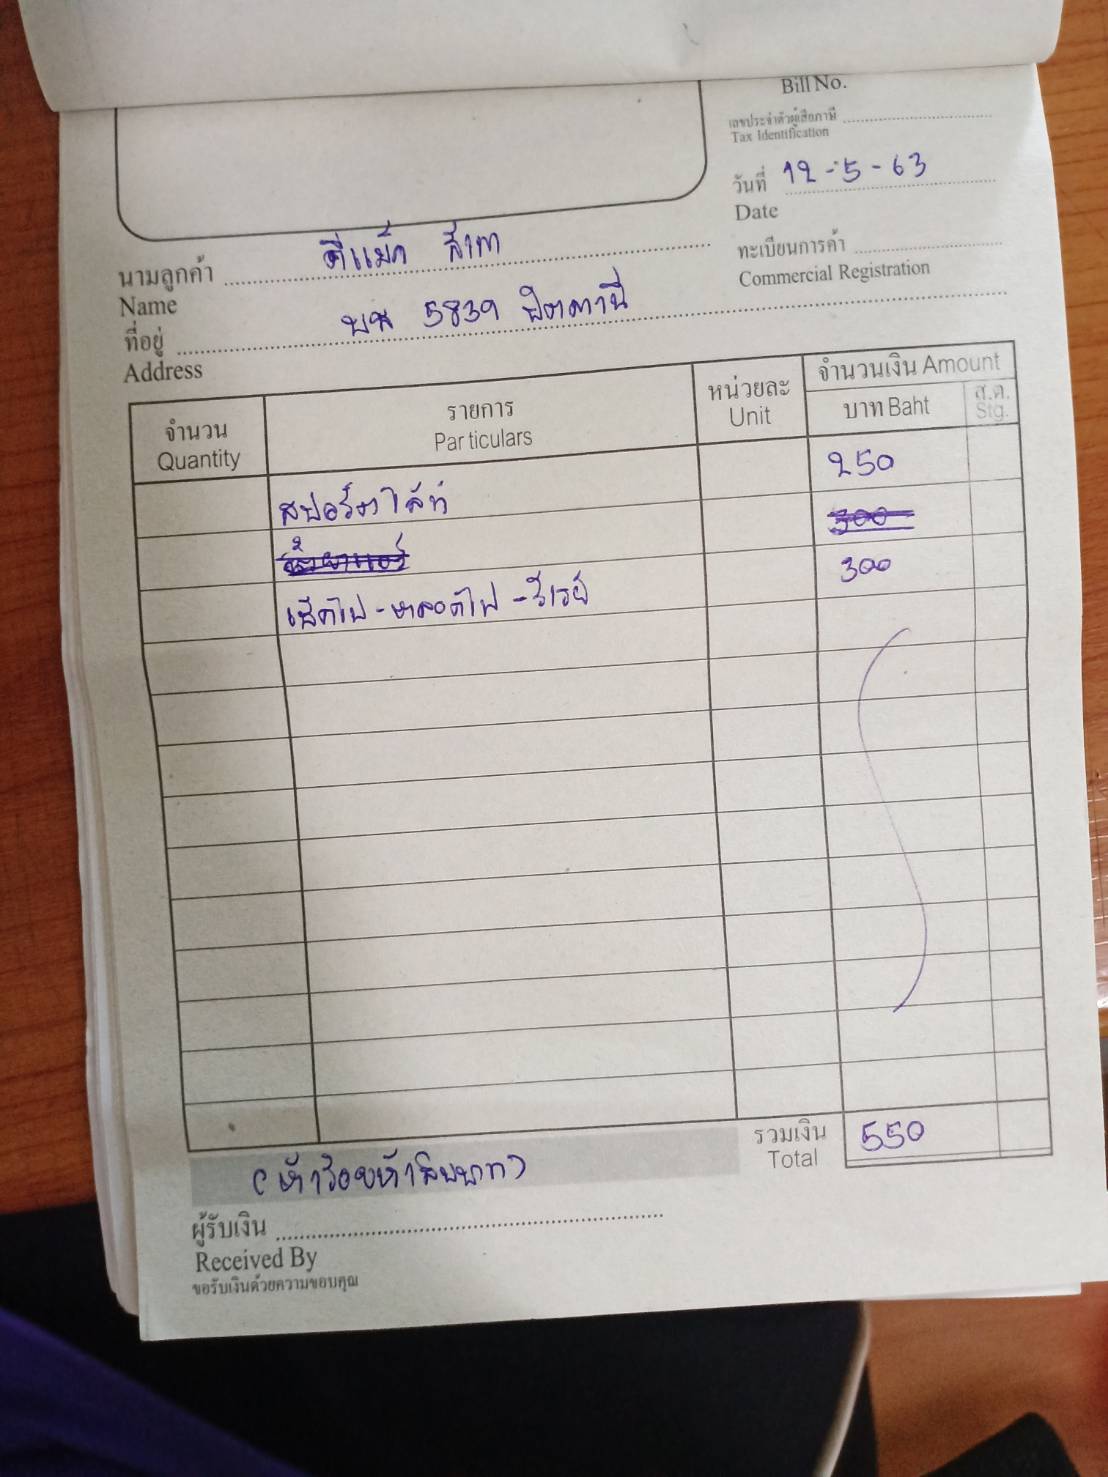 Bill No.
เลขประจำตัวผู้เสียภาษี
Tax Identification
วันที่ 12-5-63
Date
นามลูกค้า ดีแม็ก สีเทา
Name
ทะเบียนการค้า
Commercial Registration
ที่อยู่ บห 5839 ปัตตานี
Address
จำนวน รายการ หน่วยละ จำนวนเงิน Amount
Quantity Particulars Unit บาท Baht ส.ต. Stg.
สปอร์ตไล้ท์ 250
300
เช็คไฟ-หลอดไฟ-รีเรย์ 300
รวมเงิน 550
Total
(ห้าร้อยห้าสิบบาท)
ผู้รับเงิน
Received By
ขอรับเงินด้วยความขอบคุณ